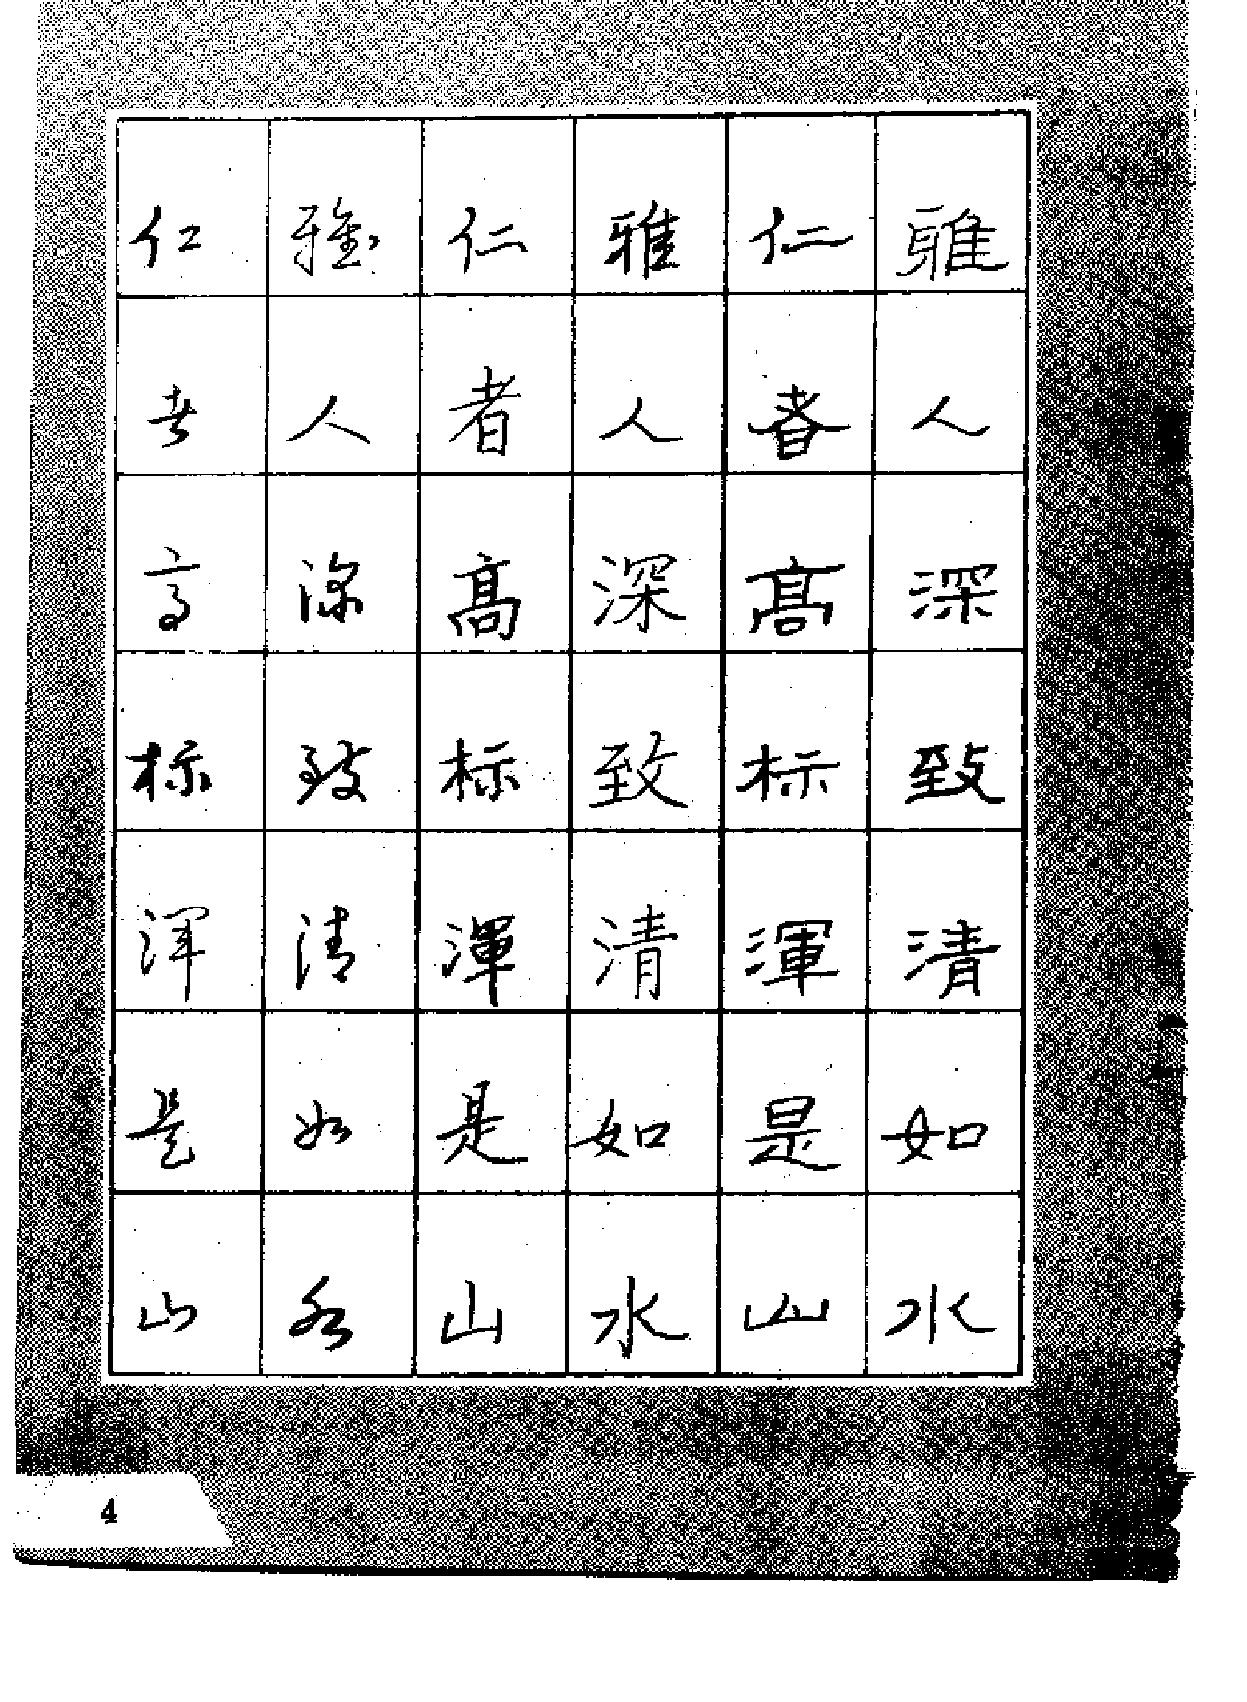 雅人深致清如水
仁者高标渾是山
雅人深致清如水
仁者高标渾是山
雅人深致清如水
仁者高标浑是山
4